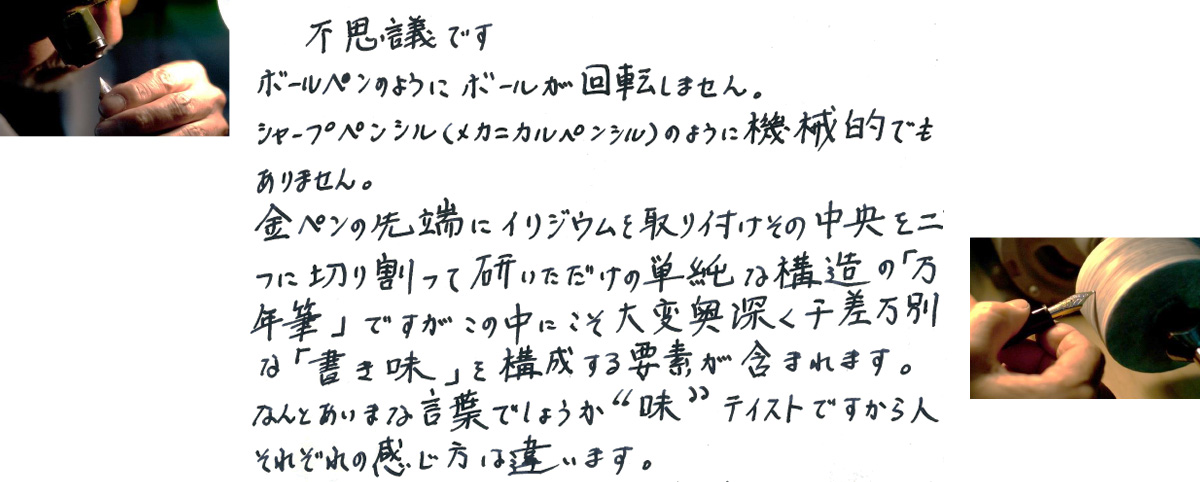 不思議です
ボールペンのようにボールが回転しません。
シャープペンシル(メカニカルペンシル)のように機械的でも
ありません。
金ペンの先端にイリジウムを取り付けその中央を二
つに切り割って研いただけの単純な構造の「万
年筆」ですがこの中にこそ大変奥深く千差万別
な「書き味」を構成する要素が含まれます。
なんとあいまな言葉でしょうか“味”テイストですから人
それぞれの感じ方は違います。